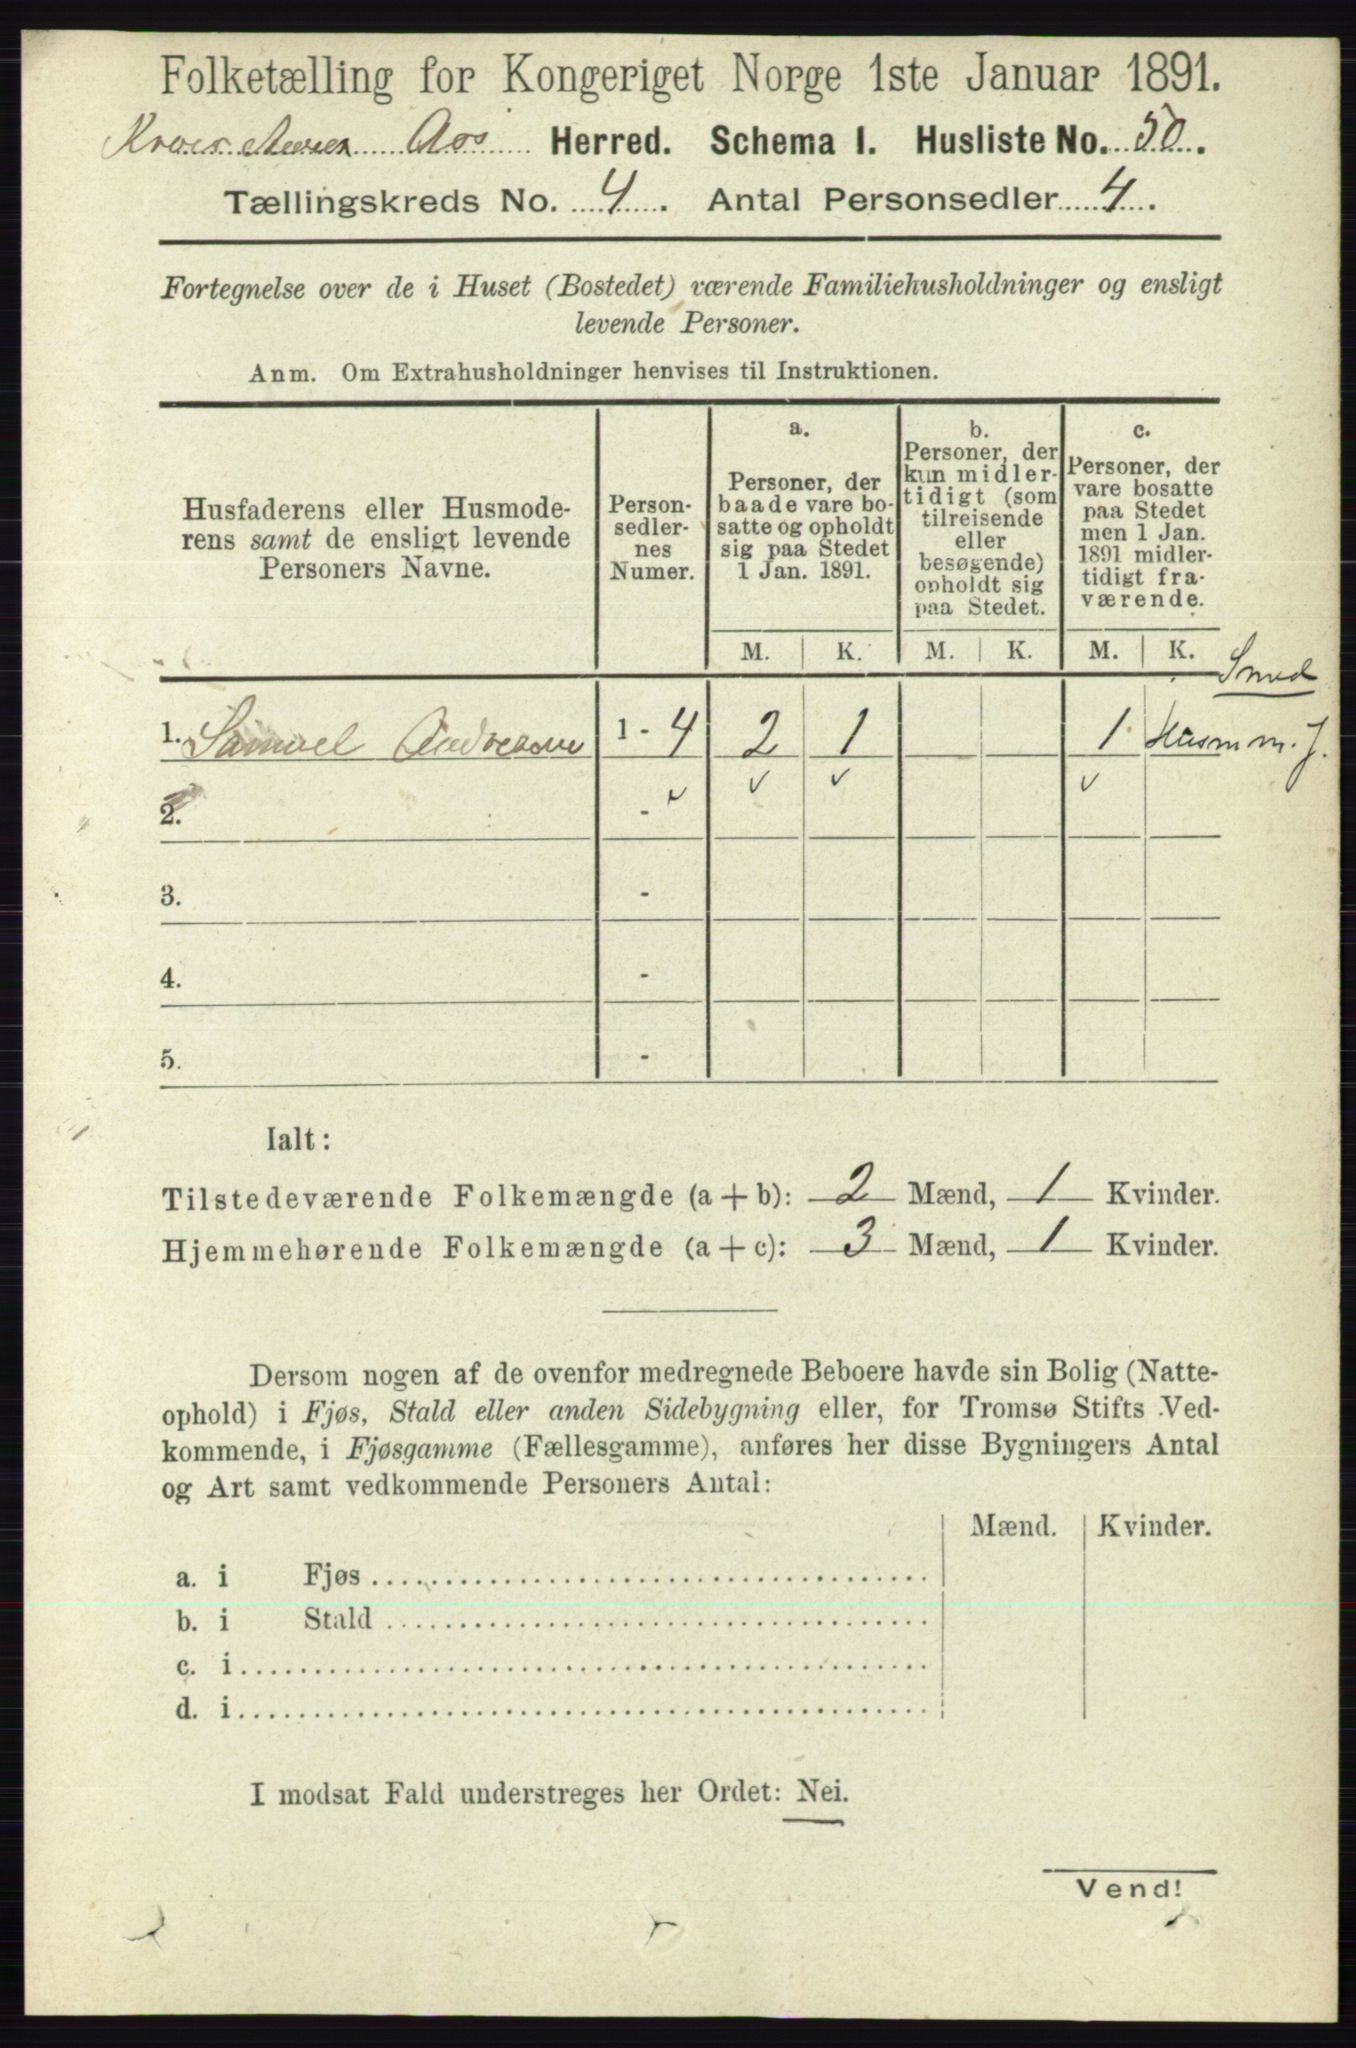 Folketælling for Kongeriget Norge 1ste Januar 1891.
Kroer Aas Herred. Schema I. Husliste No. 50.
Tællingskreds No. 4. Antal Personsedler 4.
Fortegnelse over de i Huset (Bostedet) værende Familiehusholdninger og ensligt
levende Personer.
Anm. Om Extrahusholdninger henvises til Instruktionen.
Husfaderens eller Husmode-
rens samt de ensligt levende
Personers Navne.
Person-
sedler-
nes
Numer.
a.
Personer, der
baade vare bo-
satte og opholdt
sig paa Stedet
1 Jan. 1891.
b.
Personer, der
kun midler-
tidigt (som
tilreisende
eller
besøgende)
opholdt sig
paa Stedet.
c.
Personer, der
vare bosatte
paa Stedet
men 1 Jan.
1891 midler-
tidigt fra-
værende.
M. K. M. K. M. K.
Smed
1. Samuel Andreasen 1 - 4 2 1 1 Husm m. J.
2. - ✓ ✓ ✓ ✓
3. -
4. -
5. -
Ialt:
Tilstedeværende Folkemængde (a + b): 2 Mænd, 1 Kvinder.
Hjemmehørende Folkemængde (a + c): 3 Mænd, 1 Kvinder.
Dersom nogen af de ovenfor medregnede Beboere havde sin Bolig (Natte-
ophold) i Fjøs, Stald eller anden Sidebygning eller, for Tromsø Stifts Ved-
kommende, i Fjøsgamme (Fællesgamme), anføres her disse Bygningers Antal
og Art samt vedkommende Personers Antal:
Mænd. Kvinder.
a. i Fjøs
b. i Stald
c. i
d. i
I modsat Fald understreges her Ordet: Nei.
Vend!